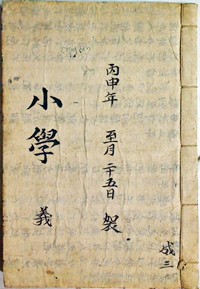 丙申年 至月 二十五日 製
小學 義
成三